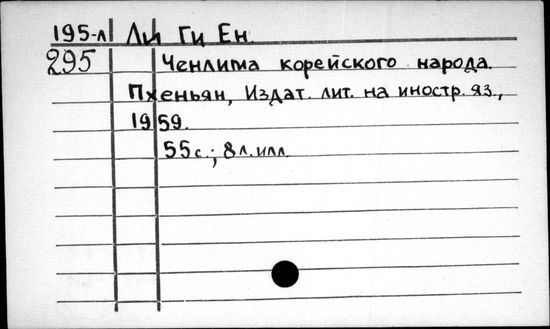 195-л Ли Ги Ен
295 Ченлима корейского народа.
Пхеньян, Издат. лит. на иностр. яз.,
1959.
55с.; 8л. илл.